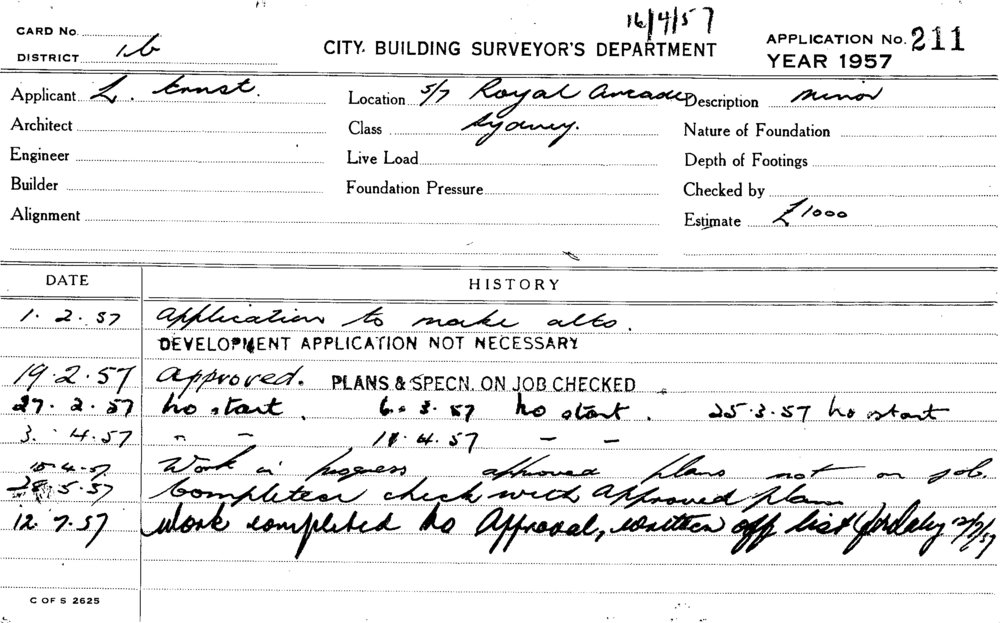 16/4/57
CARD No.
DISTRICT 1b
CITY BUILDING SURVEYOR'S DEPARTMENT
APPLICATION No. 211
YEAR 1957
Applicant L. Ernst.
Location S/7 Royal Arcade
Description Minor
Architect
Class Sydney.
Nature of Foundation
Engineer
Live Load
Depth of Footings
Builder
Foundation Pressure
Checked by
Alignment
Estimate £1000
DATE HISTORY
1. 2. 57 Application to make alts.
DEVELOPMENT APPLICATION NOT NECESSARY
19. 2. 57 Approved. PLANS & SPECN. ON JOB CHECKED
27. 2. 57 No start. 6. 3. 57 No start. 25. 3. 57 No start
3. 4. 57 " - 11. 4. 57 - -
15.4.57 Work in progress approved plans not on job.
28.5.57 Completed check with approved plan
12. 7. 57 Work completed to Approval, written off list 12/7/57
C OF S 2625